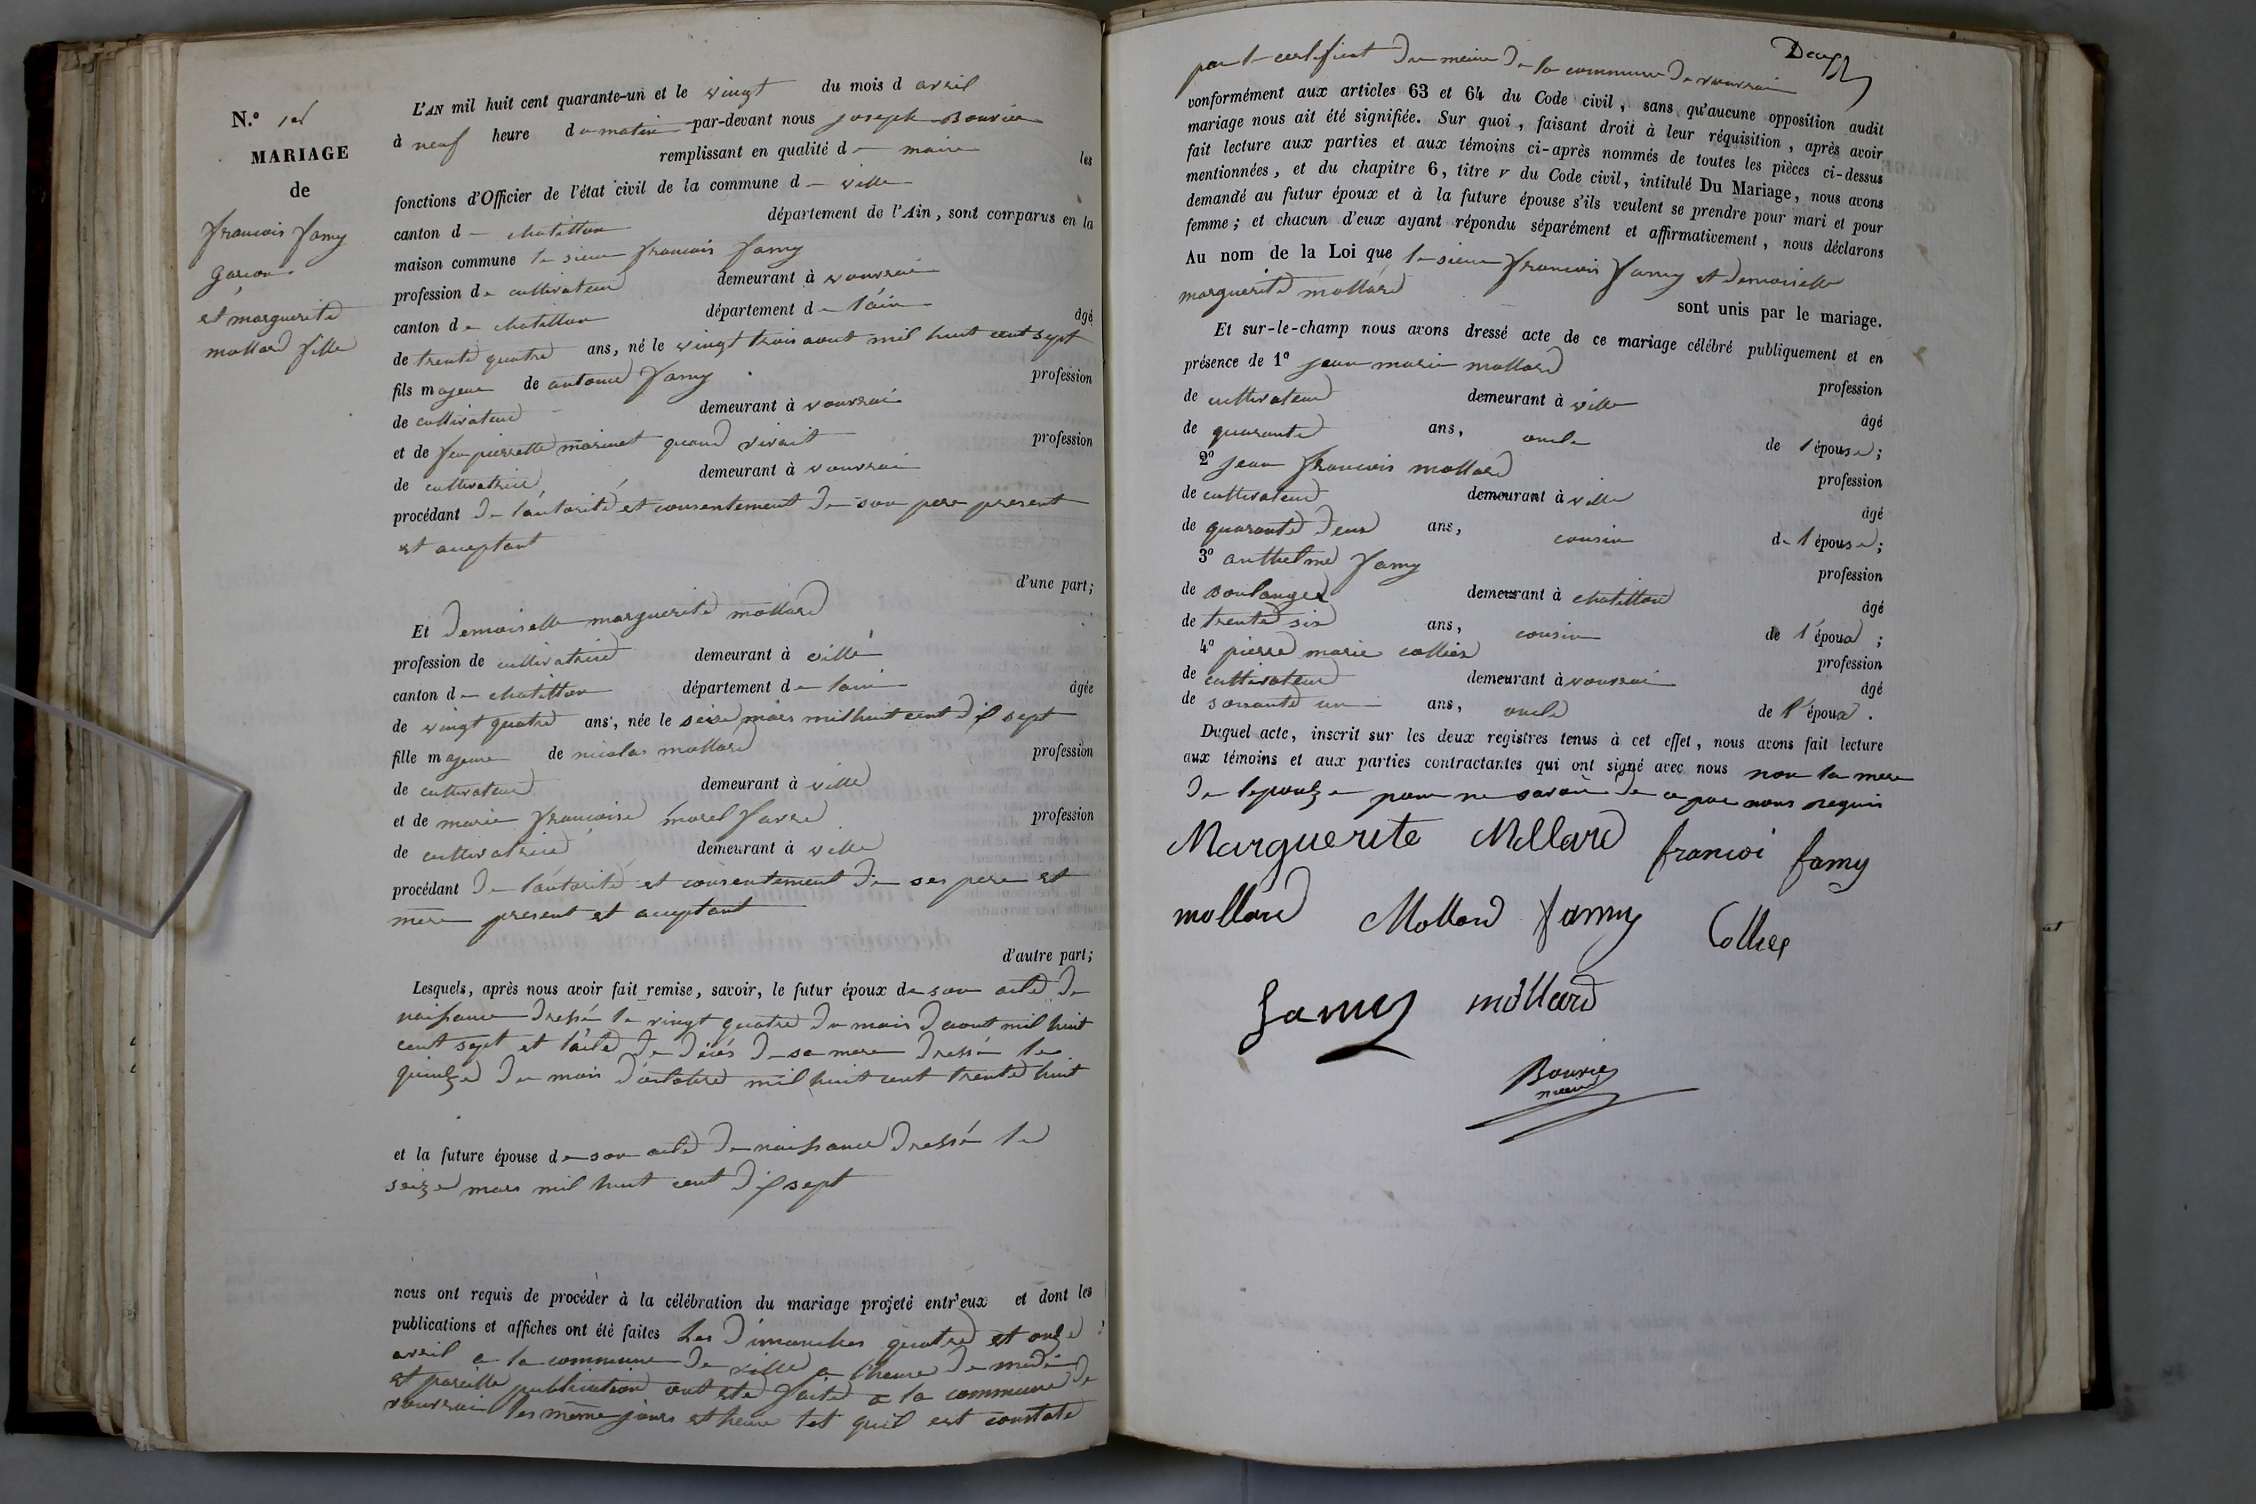 N.° 1er
MARIAGE
de
francois famy
garcon
et marguerite
mollard fille
L'AN mil huit cent quarante-un et le vingt du mois d avril
à neuf heure du matin par-devant nous joseph Bouvier
remplissant en qualité de maire les
fonctions d'Officier de l'état civil de la commune de ville
canton de chatillon département de l'Ain, sont comparus en la
maison commune le sieur francois famy
profession de cultivateur demeurant à vouvrai
canton de chatillon département de l'ain âgé
de trente quatre ans, né le vingt trois aout mil huit cent sept
fils majeur de antoine famy profession
de cultivateur demeurant à vouvrai
et de feu pierrette marinet quand vivait profession
de cultivatrice demeurant à vouvrai
procédant de l'autorité et consentement de son pere present
et acceptant
d'une part;
Et demoiselle marguerite mollard
profession de cultivatrice demeurant à ville
canton de chatillon département de lain âgée
de vingt quatre ans, née le seize mars mil huit cent dix sept
fille majeure de nicolas mollard profession
de cultivateur demeurant à ville
et de marie francoise morel favre profession
de cultivatrice demeurant à ville
procédant de l'autorité et consentement de ses pere et
mere present et acceptant
d'autre part;
Lesquels, après nous avoir fait remise, savoir, le futur époux de son acte de
naissance dressé le vingt quatre du mois d'aout mil huit
cent sept et l'acte de décés de sa mere dressé le
quinze du mois d'octobre mil huit cent trente huit
et la future épouse de son acte de naissance dressé le
seize mars mil huit cent dix sept
nous ont requis de procéder à la célébration du mariage projeté entr'eux et dont les
publications et affiches ont été faites les dimanches quatre et onze
avril a la commune de ville a l'heure de midi
et pareille publication ont eté faite a la commune de
vouvrai les même jours et heure tel quil est constaté
Deux
par le certificat du maire de la commune de vouvrai
conformément aux articles 63 et 64 du Code civil, sans qu'aucune opposition audit
mariage nous ait été signifiée. Sur quoi, faisant droit à leur réquisition, après avoir
fait lecture aux parties et aux témoins ci-après nommés de toutes les pièces ci-dessus
mentionnées, et du chapitre 6, titre v du Code civil, intitulé Du Mariage, nous avons
demandé au futur époux et à la future épouse s'ils veulent se prendre pour mari et pour
femme; et chacun d'eux ayant répondu séparément et affirmativement, nous déclarons
Au nom de la Loi que le sieur francois famy et demoiselle
marguerite mollard
sont unis par le mariage.
Et sur-le-champ nous avons dressé acte de ce mariage célébré publiquement et en
présence de 1° jean marie mollard profession
de cultivateur demeurant à ville âgé
de quarante ans, oncle de l'épouse;
2° jean francois mollard profession
de cultivateur demeurant à ville âgé
de quarante deux ans, cousin de l'épouse;
3° anthelme famy profession
de boulanger demeurant à chatillon âgé
de trente six ans, cousin de l'époux;
4° pierre marie collier profession
de cultivateur demeurant à vouvrai âgé
de soixante un ans, oncle de l'époux.
Duquel acte, inscrit sur les deux registres tenus à cet effet, nous avons fait lecture
aux témoins et aux parties contractantes qui ont signé avec nous non la mere
de lepouse pour ne savoir de ce par nous requis
Marguerite Mollard francoi famy
mollard Mollard famy Collier
famy mollard
Bouvier
maire